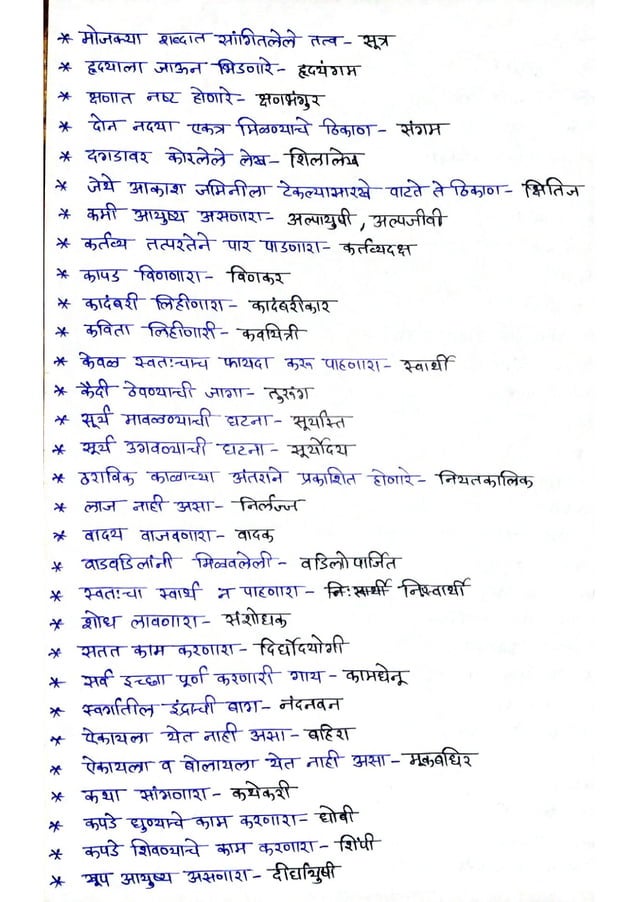 * मोजक्या शब्दात सांगितलेले तत्व - सूत्र
* हृदयाला जाऊन भिडणारे - हृदयंगम
* क्षणात नष्ट होणारे - क्षणभंगुर
* दोन नदया एकत्र मिळण्याचे ठिकाण - संगम
* दगडावर कोरलेले लेख - शिलालेख
* जेथे आकाश जमिनीला टेकल्यासारखे वाटते ते ठिकाण - क्षितिज
* कमी आयुष्य असणारा - अल्पायुषी, अल्पजीवी
* कर्तव्य तत्परतेने पार पाडणारा - कर्तव्यदक्ष
* कापड विणणारा - विणकर
* कादंबरी लिहीणारा - कादंबरीकार
* कविता लिहीणारी - कवयित्री
* केवळ स्वतःचाच फायदा करू पाहणारा - स्वार्थी
* कैदी ठेवण्याची जागा - तुरुंग
* सूर्य मावळण्याची घटना - सूर्यास्त
* सूर्य उगवण्याची घटना - सूर्योदय
* ठराविक काळाच्या अंतराने प्रकाशित होणारे - नियतकालिक
* लाज नाही असा - निर्लज्ज
* वादय वाजवणारा - वादक
* वाडवडिलांनी मिळवलेली - वडिलोपार्जित
* स्वतःचा स्वार्थ न पाहणारा - निःस्वार्थी निस्वार्थी
* शोध लावणारा - संशोधक
* सतत काम करणारा - दिर्घोदयोगी
* सर्व इच्छा पूर्ण करणारी गाय - कामधेनू
* स्वर्गातील इंद्राची बाग - नंदनवन
* ऐकायला येत नाही असा - बहिरा
* ऐकायला व बोलायला येत नाही असा - मूकबधिर
* कथा सांगणारा - कथेकरी
* कपडे धुण्याचे काम करणारा - धोबी
* कपडे शिवण्याचे काम करणारा - शिंपी
* खूप आयुष्य असणारा - दीर्घायुषी